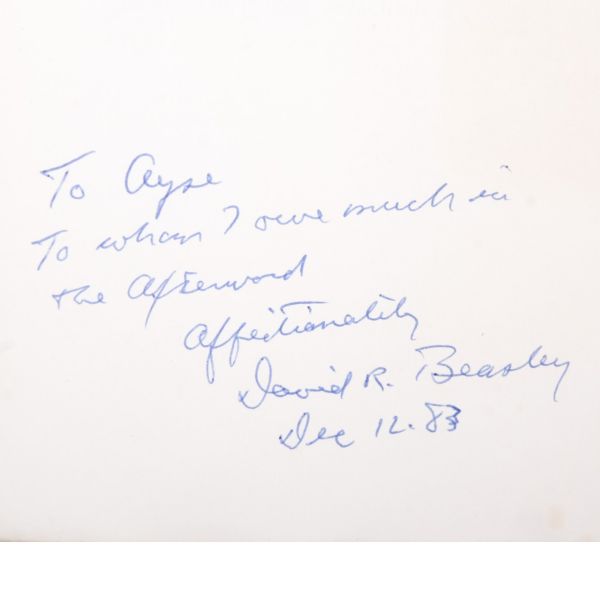 To Ayse
To whom I owe much in
the Afterword
Affectionately
David R. Beasley
Dec 12. 83